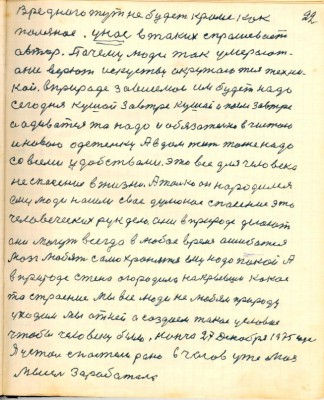 Вредного тут не будет кроме как 22
полезное. у нас в таких спрашивает
автор. Почему люди так умерают
они верют искуству окружаются техни
кой. в природе зависемом им будет надо
сегодня кушой завтре кушой и после завтре
а одеватся то надо и обязательно в чистою
и новою одеженку А в дом тит тоже надо
со всеми удобствами. Это все для человека
не спасение в жизни. А только он народился
ему люди нашли свое духовное спасение это
человеческих рук дело. они в природе делают
они могут всегда в любое время ошибатся
Мозг любять само хронятся ему надо покой А
в природе стена огородила накрывши какое
то строение. Мы все люди не любим природу
уходим мы от ней а создаем такие условие
чтобы человеку было, конча 27 декобря 1975 года
Я устал спать лег рано в часов уже моя
мысел заработала